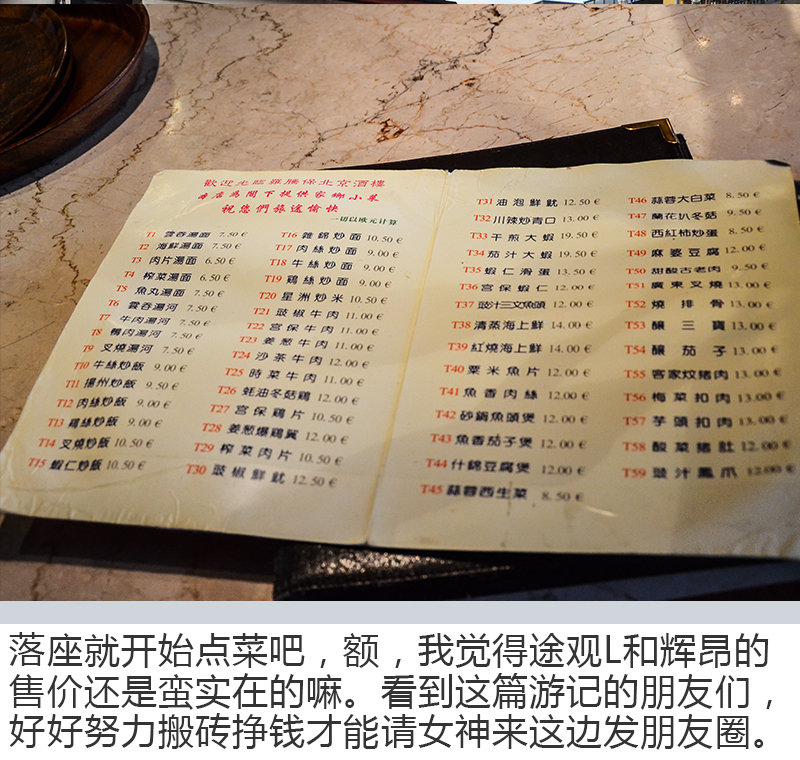 歡迎光臨羅騰保北京酒樓
本店為閣下提供家鄉小菜
祝您們旅途愉快
一切以歐元計算
T1 雲吞湯面 7.50 €
T2 海鮮湯面 7.50 €
T3 肉片湯面 6.50 €
T4 榨菜湯面 6.50 €
T5 魚丸湯面 7.50 €
T6 雲吞湯河 7.50 €
T7 牛肉湯河 7.50 €
T8 鴨肉湯河 7.50 €
T9 叉燒湯河 7.50 €
T10 牛絲炒飯 9.00 €
T11 揚州炒飯 9.50 €
T12 肉絲炒飯 9.00 €
T13 鷄絲炒飯 9.00 €
T14 叉燒炒飯 10.50 €
T15 蝦仁炒飯 10.50 €
T16 雜錦炒面 10.50 €
T17 肉絲炒面 9.00 €
T18 牛絲炒面 9.00 €
T19 鷄絲炒面 9.00 €
T20 星洲炒米 10.50 €
T21 豉椒牛肉 11.00 €
T22 宮保牛肉 11.00 €
T23 姜葱牛肉 11.00 €
T24 沙茶牛肉 12.00 €
T25 時菜牛肉 11.00 €
T26 蚝油冬菇鷄 12.00 €
T27 宮保鷄片 10.50 €
T28 姜葱爆鷄翼 12.00 €
T29 榨菜肉片 10.50 €
T30 豉椒鮮魷 12.50 €
T31 油泡鮮魷 12.50 €
T32 川辣炒青口 13.00 €
T33 干煎大蝦 19.50 €
T34 茄汁大蝦 19.50 €
T35 蝦仁滑蛋 13.50 €
T36 宮保蝦仁 12.00 €
T37 豉汁三文魚頭 12.00 €
T38 清蒸海上鮮 14.00 €
T39 紅燒海上鮮 14.00 €
T40 粟米魚片 12.00 €
T41 魚香肉絲 12.00 €
T42 砂鍋魚頭煲 12.00 €
T43 魚香茄子煲 12.00 €
T44 什錦豆腐煲 12.00 €
T45 蒜蓉西生菜 8.50 €
T46 蒜蓉大白菜 8.50 €
T47 蘭花扒冬菇 9.50 €
T48 西紅柿炒蛋 8.50 €
T49 麻婆豆腐 12.00 €
T50 甜酸古老肉 9.50 €
T51 廣東叉燒 13.00 €
T52 燒排骨 13.00 €
T53 釀三寶 13.00 €
T54 釀茄子 13.00 €
T55 客家炆豬肉 13.00 €
T56 梅菜扣肉 13.00 €
T57 芋頭扣肉 13.00 €
T58 酸菜豬肚 12.00 €
T59 豉汁鳳爪 12.00 €
落座就开始点菜吧，额，我觉得途观L和辉昂的
售价还是蛮实在的嘛。看到这篇游记的朋友们，
好好努力搬砖挣钱才能请女神来这边发朋友圈。